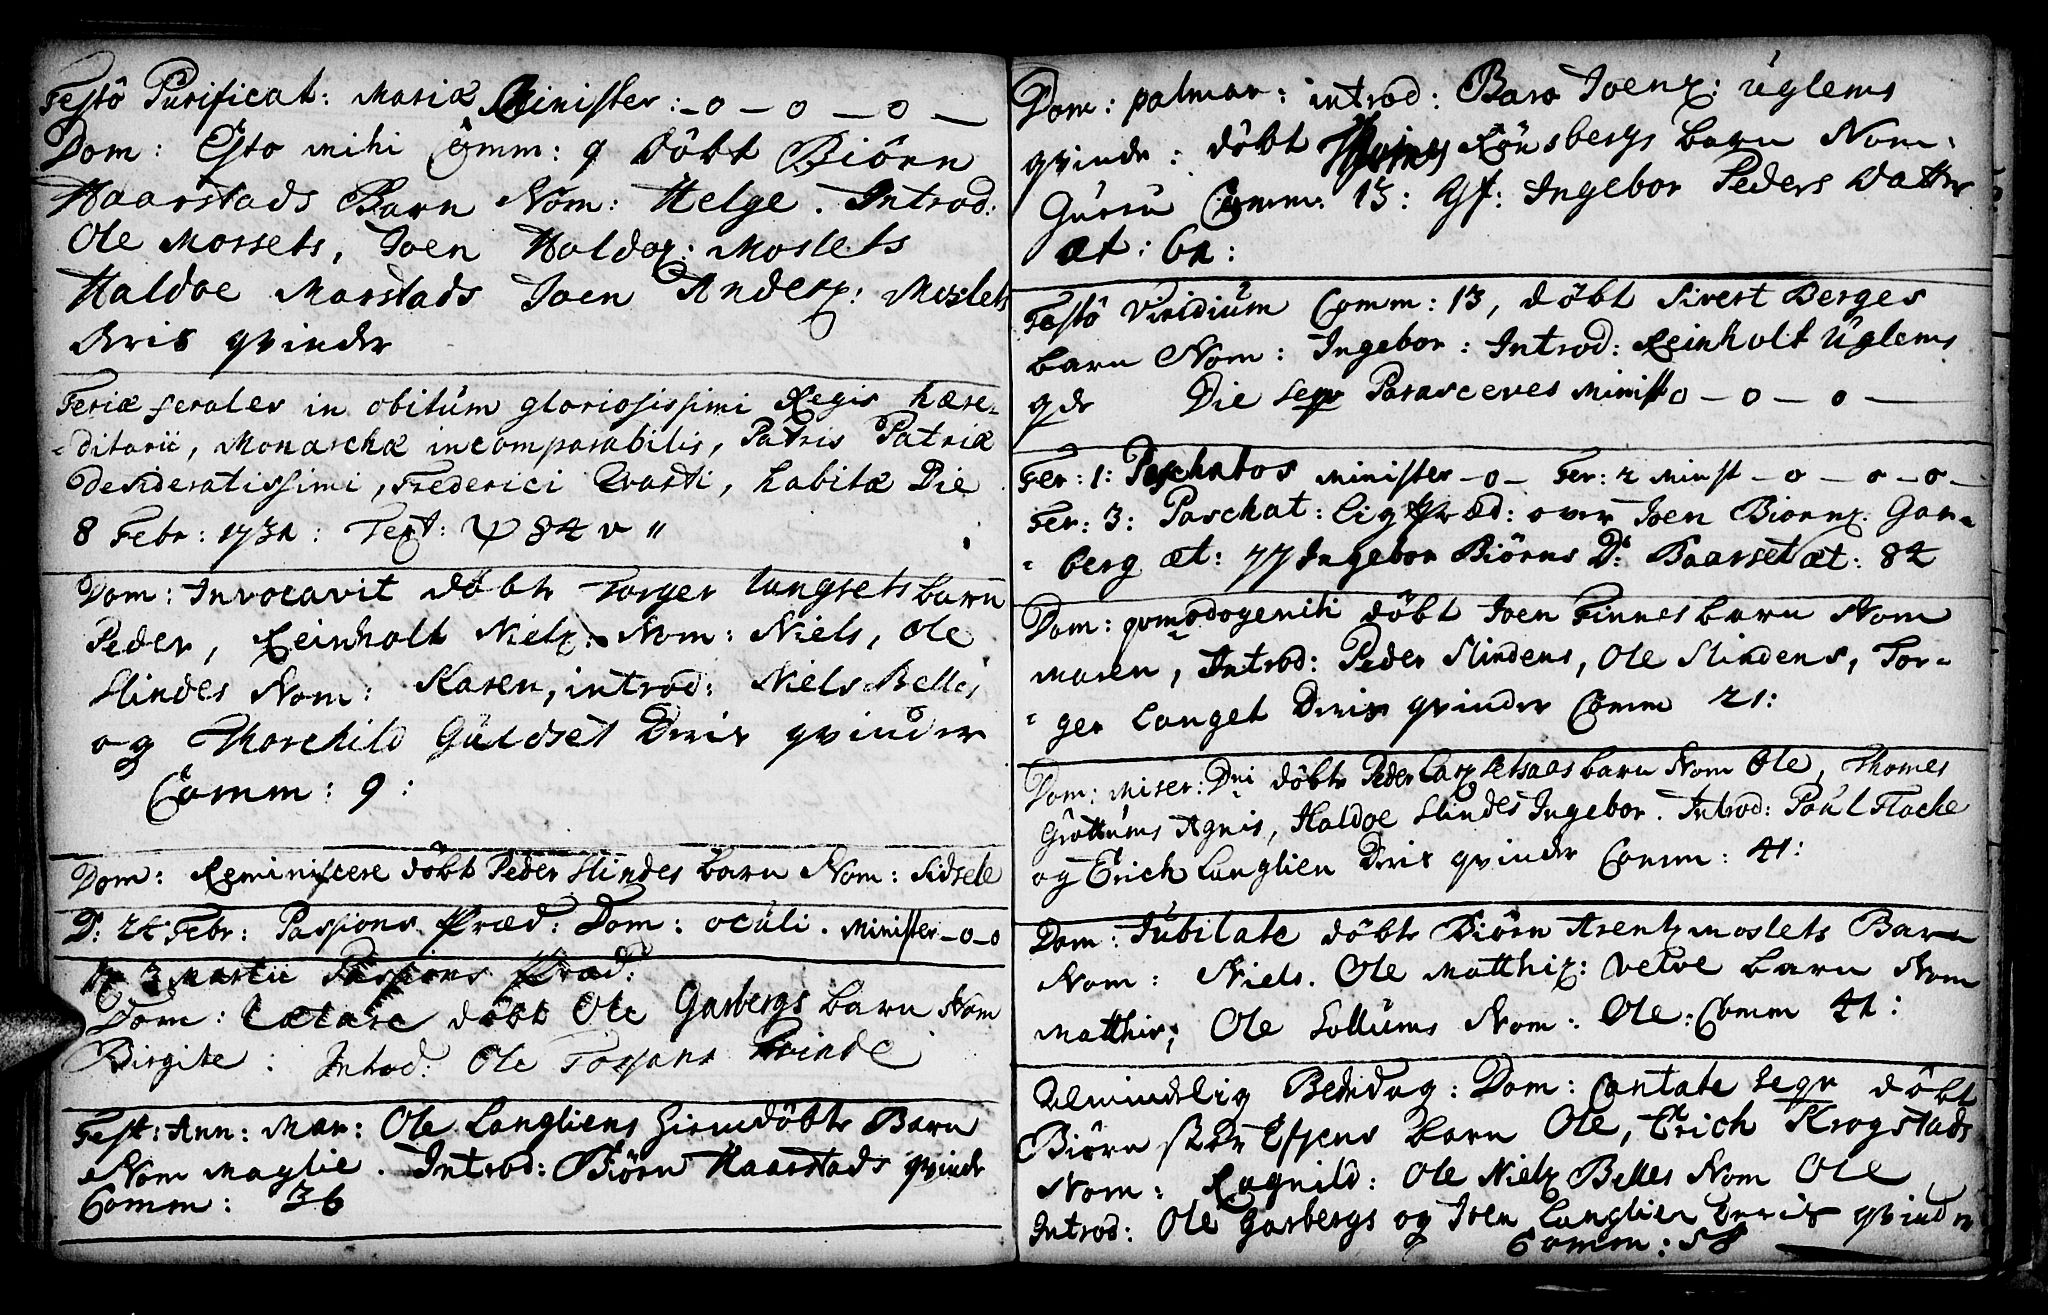 Festo Purificat: Mariæ Minister: -o-o-o-
Dom: Esto mihi Comm: 9 döbt Biörn
Haarstads Barn Nom: Helge. Introd:
Ole Mossets, Joen Haldox: Moslets
Haldoe Marstads Joen Anderx: Moslets
deris qvinder
Feriæ ferales in obitum gloriosissimi Regis hære-
-ditarii, Monarchæ incomparabilis, Patris Patriæ
desideratissimi, Frederici Qvarti, habitæ Die
8 Febr: 1731: Text: Ψ 84 v 11
Dom: Invocavit döbt Torger Langsets barn
Peder, Reinholt Nielx: Nom: Niels, Ole
Slindes Nom: Karen, introd: Niels Belles
og Thorchild Guldset deris qvinder
Comm: 9:
Dom: Reminiscere döbt Peder Slindes barn Nom: Sidsele
D: 24 Febr: Passions Præd: Dom: oculi. Minister -o-o
3 Martii Passions Præd:
Dom: Lætare döbt Ole Garbergs barn Nom
Birgite: Introd: Ole qvinde
Fest: Ann: Mar: Ole Langliens hiemdöbt Barn
Nom Maglie. Introd: Biörn Haarstads qvinde
Comm: 36
Dom: palmar: introd: Baro Joenx: Uglems
qvinde: döbt Rönsbergs barn Nom:
Guru Comm: 13: Ingebor Peders datter
æt: 61:
Festo Viridium Comm: 13, döbt Sivert Berges
barn Nom: Ingebor: Introd: Reinholt Uglems
qde Die seqv Parasceves Minist o-o-o-
Fer: 1: Paschatos minister -o- Fer: 2 Minist -o-o-o-
Fer: 3: Paschat: Lig Præd: over Joen Biörnx. Gar-
-berg æt: 77 Ingebor Biörns D: Baarset æt: 84
Dom: qvmodogeniti döbt Joen Finnes barn Nom
Maren, Introd: Peder Slindens, Ole Slindens, Tor-
-ger Langet deris qvinder Comm 21:
Dom: Miser: Dni döbt Peder Larx Setsaas barn Nom Ole, Thomes
Grøttums Agnis, Haldoe Slindes Ingebor. Introd: Poul Flache
og Erich Langlien deris qvinder Comm: 41:
Dom: Jubilate döbt Biörn Arentx Moslets Barn
Nom: Niels. Ole Matthix: Velve barn Nom
Matthis; Ole Sollums Nom: Ole: Comm 41:
Almindelig Bededag: Dom: Cantate seqv döbt
Biörn barn Ole, Erich Krogstads
Nom: Ragnild: Ole Nielx Belles Nom Ole
Introd: Ole Garbergs og Joen Langlien deris qvinder
Comm: 58